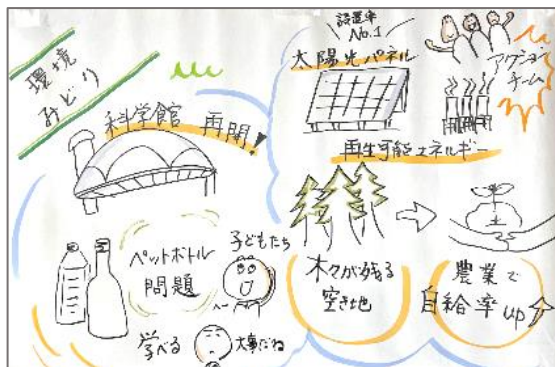 環境
みどり
科学館 再開!
設置率
No.1
太陽光パネル
アクション
チーム
再生可能エネルギー
ペットボトル
問題
子どもたち
学べる
大事だね
木々が残る
空き地
土
農業で
自給率up